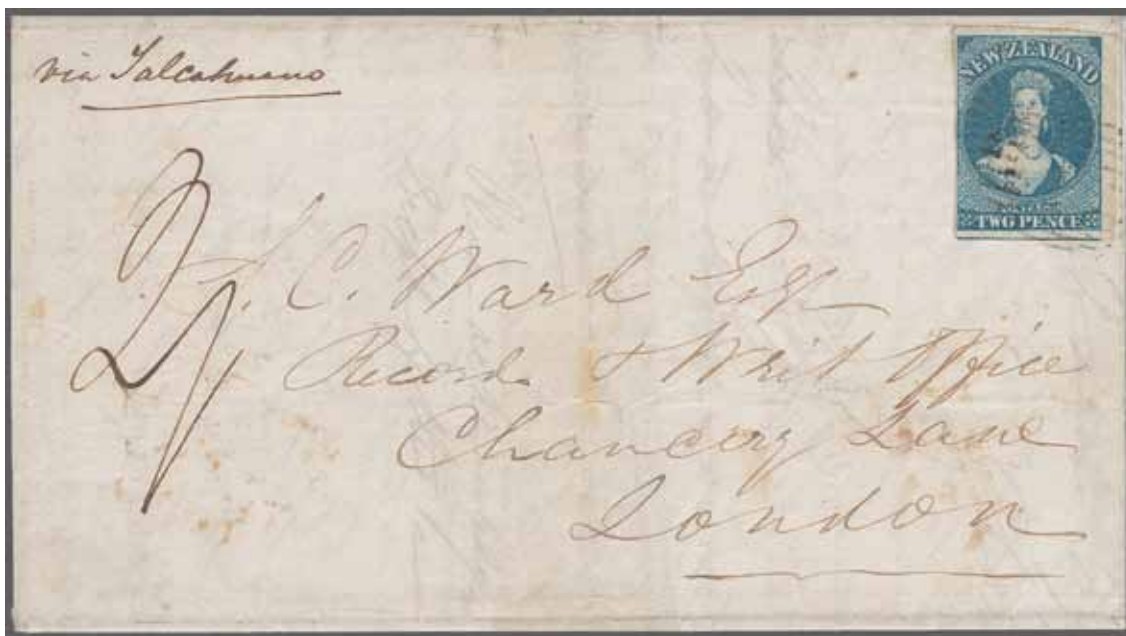 via Talcahuano
NEW ZEALAND
POSTAGE
TWO PENCE
2/
J. C. Ward Esq
Record & Writ Office
Chancery Lane
London